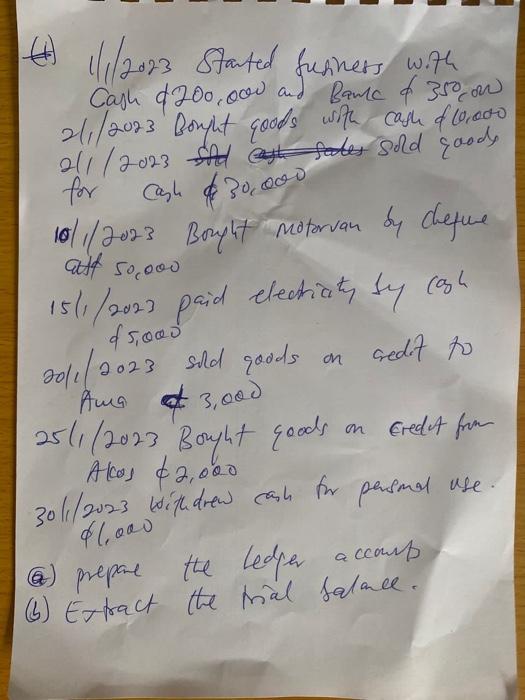 (1) 1/1/2023 Started business with
Cash ¢200,000 and Bank ¢350,000
2/1/2023 Bought goods with cash ¢10,000
2/1/2023 sold goods
for cash ¢30,000
10/1/2023 Bought motorvan by cheque
50,000
15/1/2023 paid electricity by cash
¢5,000
20/1/2023 sold goods on credit to
Ama ¢3,000
25/1/2023 Bought goods on credit from
Akos ¢2,000
30/1/2023 Withdrew cash for personal use.
¢1,000
(a) prepare the ledger accounts
(b) Extract the trial balance.